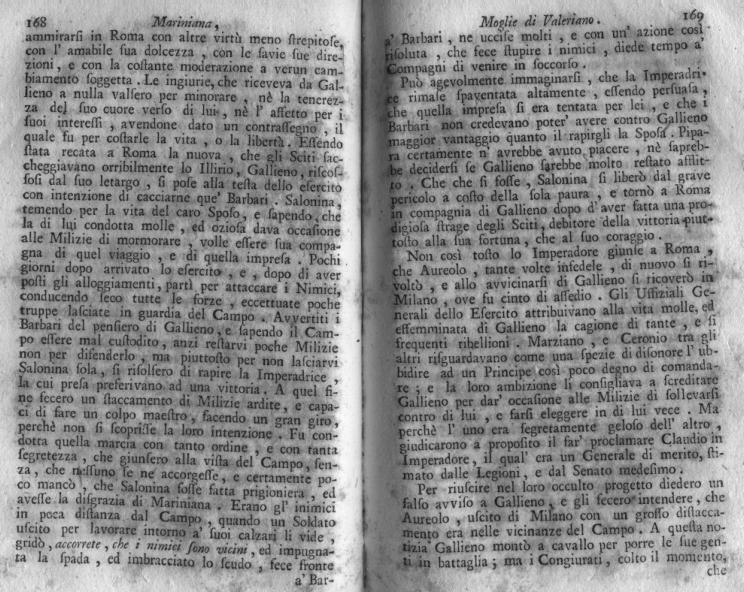 168 Mariniana,
ammirarſi in Roma con altre virtù meno ſtrepitoſe,
con l' amabile ſua dolcezza , con le ſavie ſue dire-
zioni, e con la coſtante moderazione a verun cam-
biamento ſoggetta . Le ingiurie, che riceveva da Gal-
lieno a nulla valſero per minorare , nè la tenerez-
za del ſuo cuore verſo di lui , nè l' affetto per i
ſuoi intereſſi , avendone dato un contraſſegno , il
quale fu per coſtarle la vita , o la libertà . Eſſendo
ſtata recata a Roma la nuova , che gli Sciti ſac-
cheggiavano orribilmente lo Illirio, Gallieno, riſcoſ-
ſoſi dal ſuo letargo , ſi poſe alla teſta dello eſercito
con intenzione di cacciarne que' Barbari . Salonina,
temendo per la vita del caro Spoſo, e ſapendo, che
la di lui condotta molle, ed ozioſa dava occaſione
alle Milizie di mormorare , volle eſſere ſua compa-
gna di quel viaggio , e di quella impreſa . Pochi
giorni dopo arrivato lo eſercito , e , dopo di aver
poſti gli alloggiamenti, partì per attaccare i Nimici,
conducendo ſeco tutte le forze , eccettuate poche
truppe laſciate in guardia del Campo . Avvertiti i
Barbari del penſiero di Gallieno, e ſapendo il Cam-
po eſſere mal cuſtodito, anzi reſtarvi poche Milizie
non per difenderlo , ma piuttoſto per non laſciarvi
Salonina ſola, ſi riſolſero di rapire la Imperadrice ,
la cui preſa preferivano ad una vittoria. A quel fi-
ne fecero un ſtaccamento di Milizie ardite, e capa-
ci di fare un colpo maeſtro, facendo un gran giro,
perchè non ſi ſcopriſſe la loro intenzione. Fu con-
dotta quella marcia con tanto ordine , e con tanta
ſegretezza , che giunſero alla viſta del Campo, ſen-
za, che neſſuno ſe ne accorgeſſe, e certamente po-
co mancò , che Salonina foſſe fatta prigioniera , ed
aveſſe la diſgrazia di Mariniana . Erano gl' inimici
in poca diſtanza dal Campo , quando un Soldato
uſcito per lavorare intorno a' ſuoi calzari li vide ,
gridò, accorrete, che i nimici ſono vicini, ed impugna-
ta la ſpada , ed imbracciato lo ſcudo , fece fronte
a' Bar-
Moglie di Valeriano. 169
a' Barbari , ne ucciſe molti , e con un' azione così
riſoluta , che fece ſtupire i nimici , diede tempo a'
Compagni di venire in ſoccorſo .
Può agevolmente immaginarſi , che la Imperadri-
ce rimaſe ſpaventata altamente , eſſendo perſuaſa ,
che quella impreſa ſi era tentata per lei , e che i
Barbari non credevano poter' avere contro Gallieno
maggior vantaggio quanto il rapirgli la Spoſa. Pipa-
ra certamente n' avrebbe avuto piacere , nè ſapreb-
be deciderſi ſe Gallieno ſarebbe molto reſtato afflit-
to . Che che ſi foſſe , Salonina ſi liberò dal grave
pericolo a coſto della ſola paura , e tornò a Roma
in compagnia di Gallieno dopo d' aver fatta una pro-
digioſa ſtrage degli Sciti, debitore della vittoria piut-
toſto alla ſua fortuna , che al ſuo coraggio .
Non così toſto lo Imperadore giunſe a Roma ,
che Aureolo , tante volte infedele , di nuovo ſi ri-
voltò , e allo avvicinarſi di Gallieno ſi ricoverò in
Milano , ove fu cinto di aſſedio . Gli Uffiziali Ge-
nerali dello Eſercito attribuivano alla vita molle, ed
effemminata di Gallieno la cagione di tante , e ſi
frequenti ribellioni . Marziano , e Ceronio tra gli
altri riſguardavano come una ſpezie di diſonore l' ub-
bidire ad un Principe così poco degno di comanda-
re ; e la loro ambizione li conſigliava a ſcreditare
Gallieno per dar' occaſione alle Milizie di ſollevarſi
contro di lui , e farſi eleggere in di lui vece . Ma
perchè l' uno era ſegretamente geloſo dell' altro ,
giudicarono a propoſito il far' proclamare Claudio in
Imperadore, il qual' era un Generale di merito, ſti-
mato dalle Legioni, e dal Senato medeſimo.
Per riuſcire nel loro occulto progetto diedero un
falſo avviſo a Gallieno, e gli fecero intendere, che
Aureolo , uſcito di Milano con un groſſo diſtacca-
mento era nelle vicinanze del Campo. A queſta no-
tizia Gallieno montò a cavallo per porre le ſue gen-
ti in battaglia; ma i Congiurati, colto il momento,
che